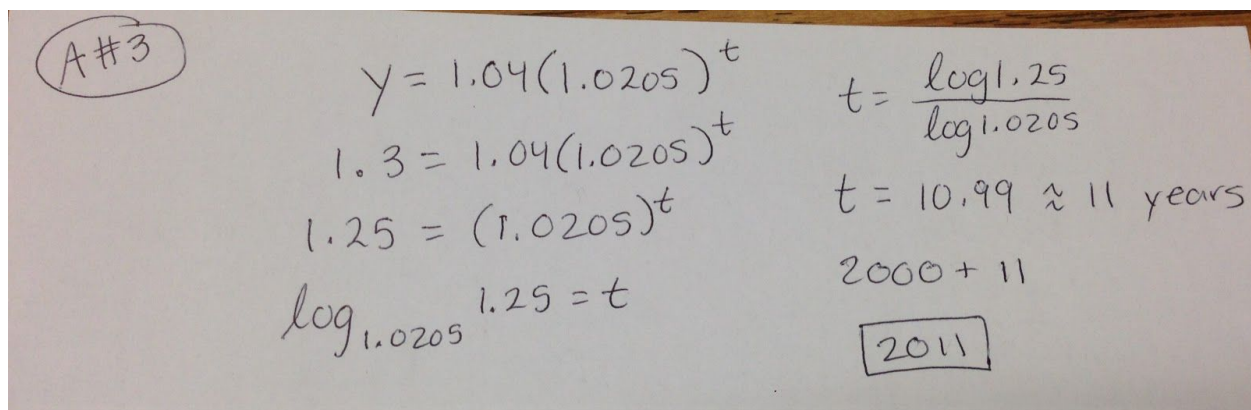 A#3
y = 1.04(1.0205)^t
1.3 = 1.04(1.0205)^t
1.25 = (1.0205)^t
log_1.0205 1.25 = t
t = log1.25 / log1.0205
t = 10.99 ≈ 11 years
2000 + 11
2011